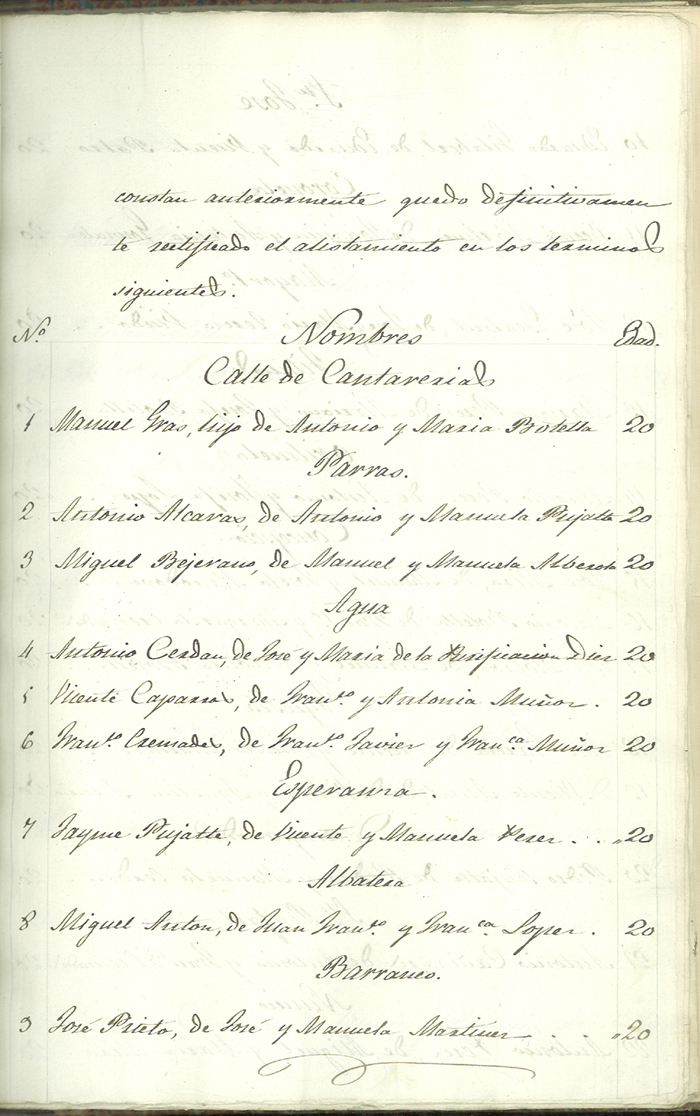 constan anteriormente quedo definitivamen
te rectificado el alistamiento en los terminos
siguientes.
No. Nombres Edad.
Calle de Cantarerias
1 Manuel Gras, hijo de Antonio y Maria Botella 20
Parras.
2 Antonio Alcaras, de Antonio y Manuela Pujalte 20
3 Miguel Bejerano, de Manuel y Manuela Alberola 20
Agua
4 Antonio Cerdan, de José y Maria de la Purificacion Dier 20
5 Vicente Caparros, de Franco. y Antonia Muñoz. 20
6 Franco. Cremades, de Franco. Javier y Franca. Muñoz 20
Esperanza.
7 Jayme Pujalte, de Vicente y Manuela Perez . . „20
Albatera
8 Miguel Anton, de Juan Franco. y Franca. Lopez. 20
Barranco.
9 José Prieto, de José y Manuela Martinez . . „20